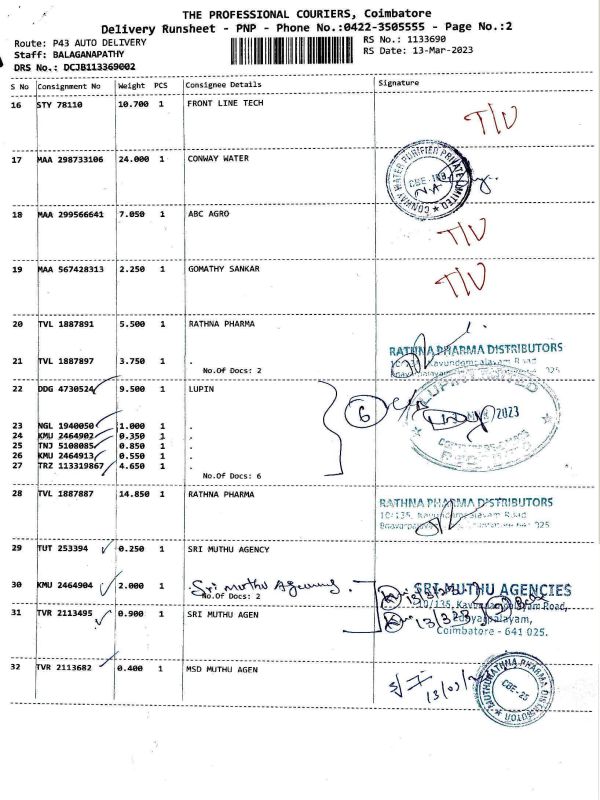 THE PROFESSIONAL COURIERS, Coimbatore
Delivery Runsheet - PNP - Phone No.:0422-3505555 - Page No.:2
Route: P43 AUTO DELIVERY RS No.: 1133690
Staff: BALAGANAPATHY RS Date: 13-Mar-2023
DRS No.: DCJB113369002
S No Consignment No Weight PCS Consignee Details Signature
16 STY 78110 10.700 1 FRONT LINE TECH
T/U
17 MAA 298733106 24.000 1 CONWAY WATER
CONWAY WATER PURIFIED PRIVATE LIMITED
18 MAA 299566641 7.050 1 ABC AGRO
T/U
19 MAA 567428313 2.250 1 GOMATHY SANKAR
T/U
20 TVL 1887891 5.500 1 RATHNA PHARMA
RATHNA PHARMA DISTRIBUTORS
21 TVL 1887897 3.750 1 .
No.Of Docs: 2
22 DDG 4730524 9.500 1 LUPIN
6
2023
23 NGL 1940050 1.000 1 .
24 KMU 2464902 0.350 1 .
25 TNJ 5108085 0.850 1 .
26 KMU 2464913 0.550 1 .
27 TRZ 113319867 4.650 1 .
No.Of Docs: 6
28 TVL 1887887 14.850 1 RATHNA PHARMA
RATHNA PHARMA DISTRIBUTORS
10/135, Kavundampalayam Road
29 TUT 253394 0.250 1 SRI MUTHU AGENCY
30 KMU 2464904 2.000 1 .
No.Of Docs: 2
SRI MUTHU AGENCIES
10/135, Kavundampalayam Road,
31 TVR 2113495 0.900 1 SRI MUTHU AGEN
Coimbatore - 641 025.
32 TVR 2113682 0.400 1 MSD MUTHU AGEN
MUTHURATHNA PHARMA DISTRIBUTOR
CBE-25